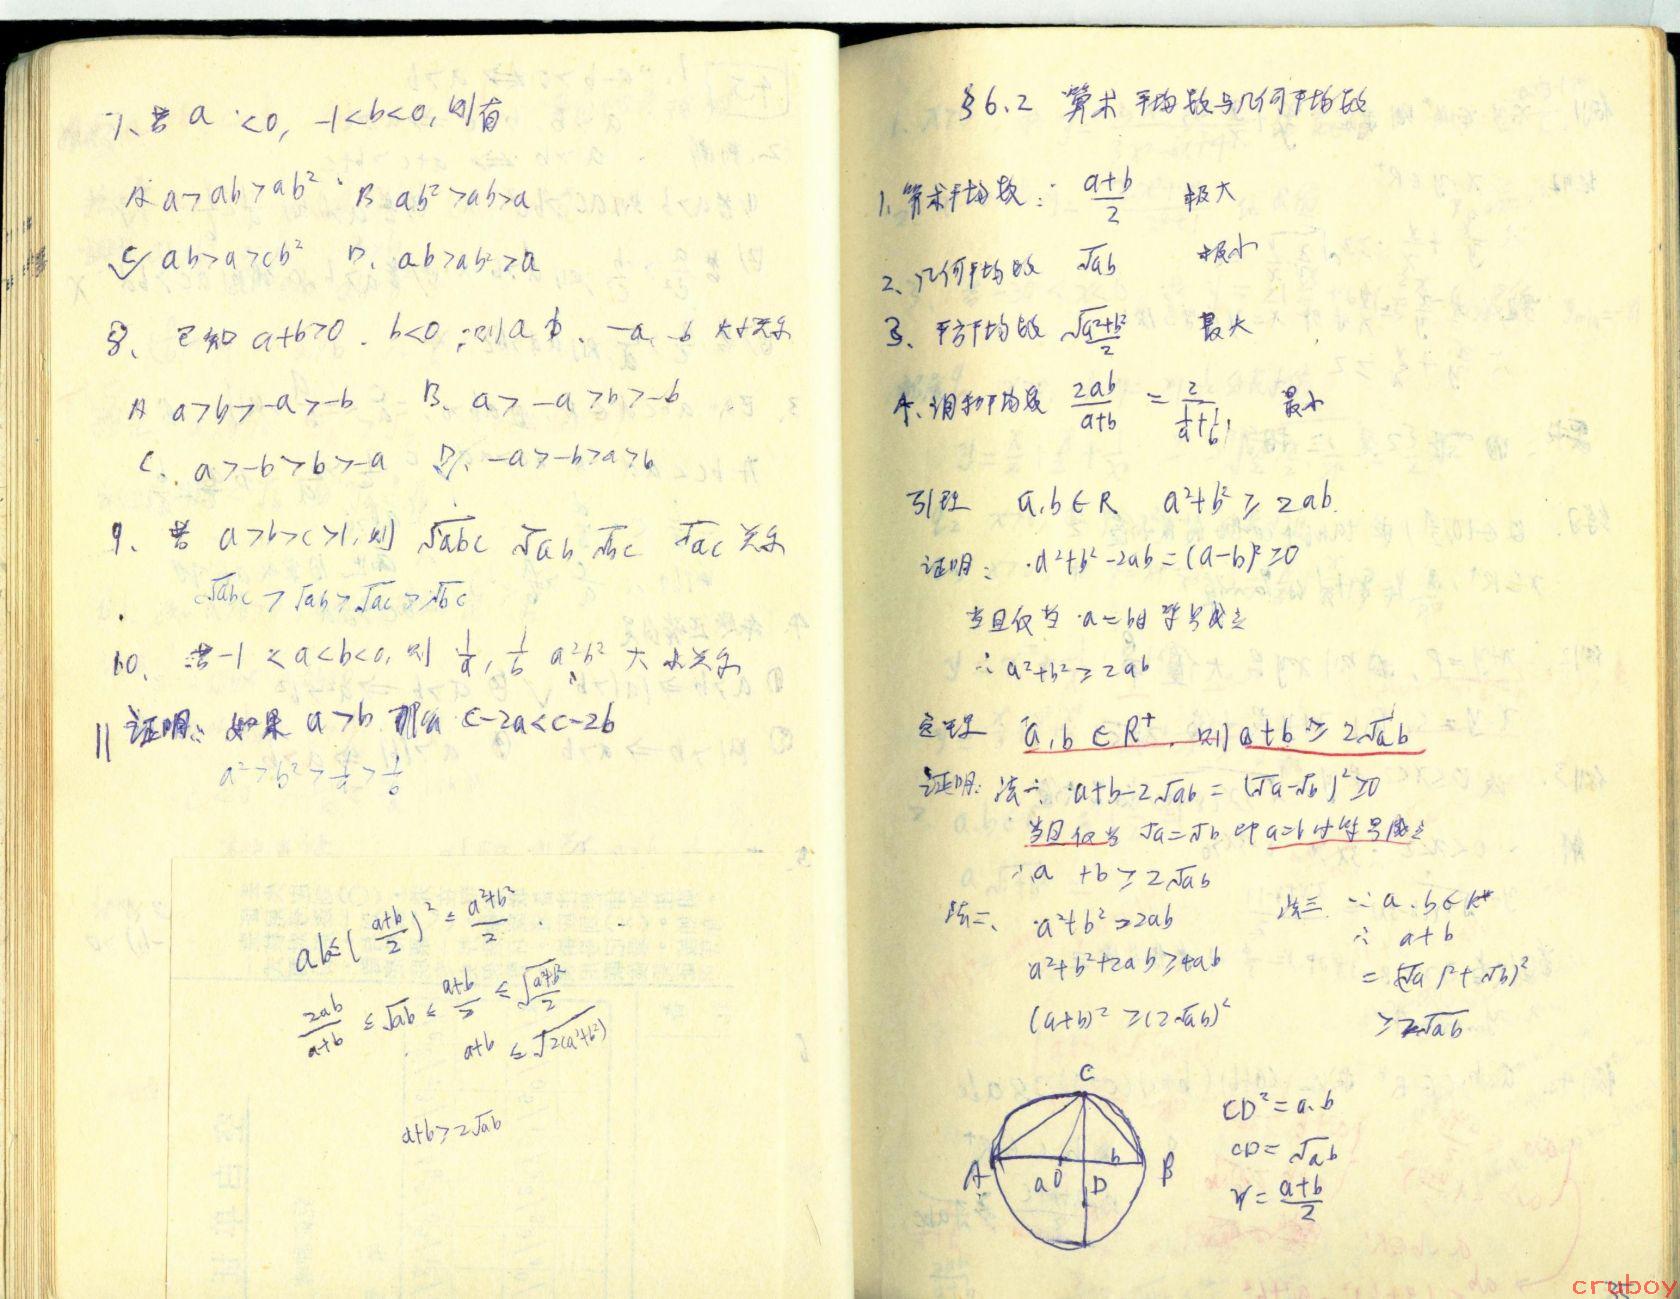 7、若 a<0, -1<b<0, 则有
A a>ab>ab² B ab²>ab>a
C ab>a>ab² D. ab>ab²>a
8、已知 a+b>0. b<0; 则 a, b、-a, -b 大小关系
A a>b>-a>-b B、a>-a>b>-b
C. a>-b>b>-a D. -a>-b>a>b
9、若 a>b>c>1, 则 √abc √ab √bc √ac 关系
√abc > √ab > √ac > √bc
10、若 -1<a<b<0, 则 1/a, 1/b a² b² 大小关系
11 证明: 如果 a>b 那么 c-2a<c-2b
a²>b²>1/a>1/b
ab≤(a+b/2)²≤a²+b²/2
2ab/a+b ≤ √ab ≤ a+b/2 ≤ √a²+b²/2
a+b ≤ √2(a²+b²)
a+b>2√ab
§6.2 算术平均数与几何平均数
1、算术平均数: a+b/2 极大
2、几何平均数 √ab 极小
3、平方平均数 √a²+b²/2 最大
4、调和平均数 2ab/a+b = 2/1/a+1/b 最小
引理 a,b∈R a²+b²≥2ab.
证明: a²+b²-2ab=(a-b)²≥0
当且仅当 a=b时等号成立
∴a²+b²≥2ab
定理 a,b∈R⁺, 则 a+b≥2√ab
证明: 法一: a+b-2√ab=(√a-√b)²≥0
当且仅当 √a=√b 即a=b时等号成立
∴a+b≥2√ab
法二、a²+b²>2ab
a²+b²+2ab≥4ab
(a+b)²≥(2√ab)²
法三 ∵a.b∈R⁺
∴ a+b
=(√a)²+√b)²
≥2√ab
C
A a O D b B
CD²=a.b
CD=√ab
r=a+b/2
cruboy